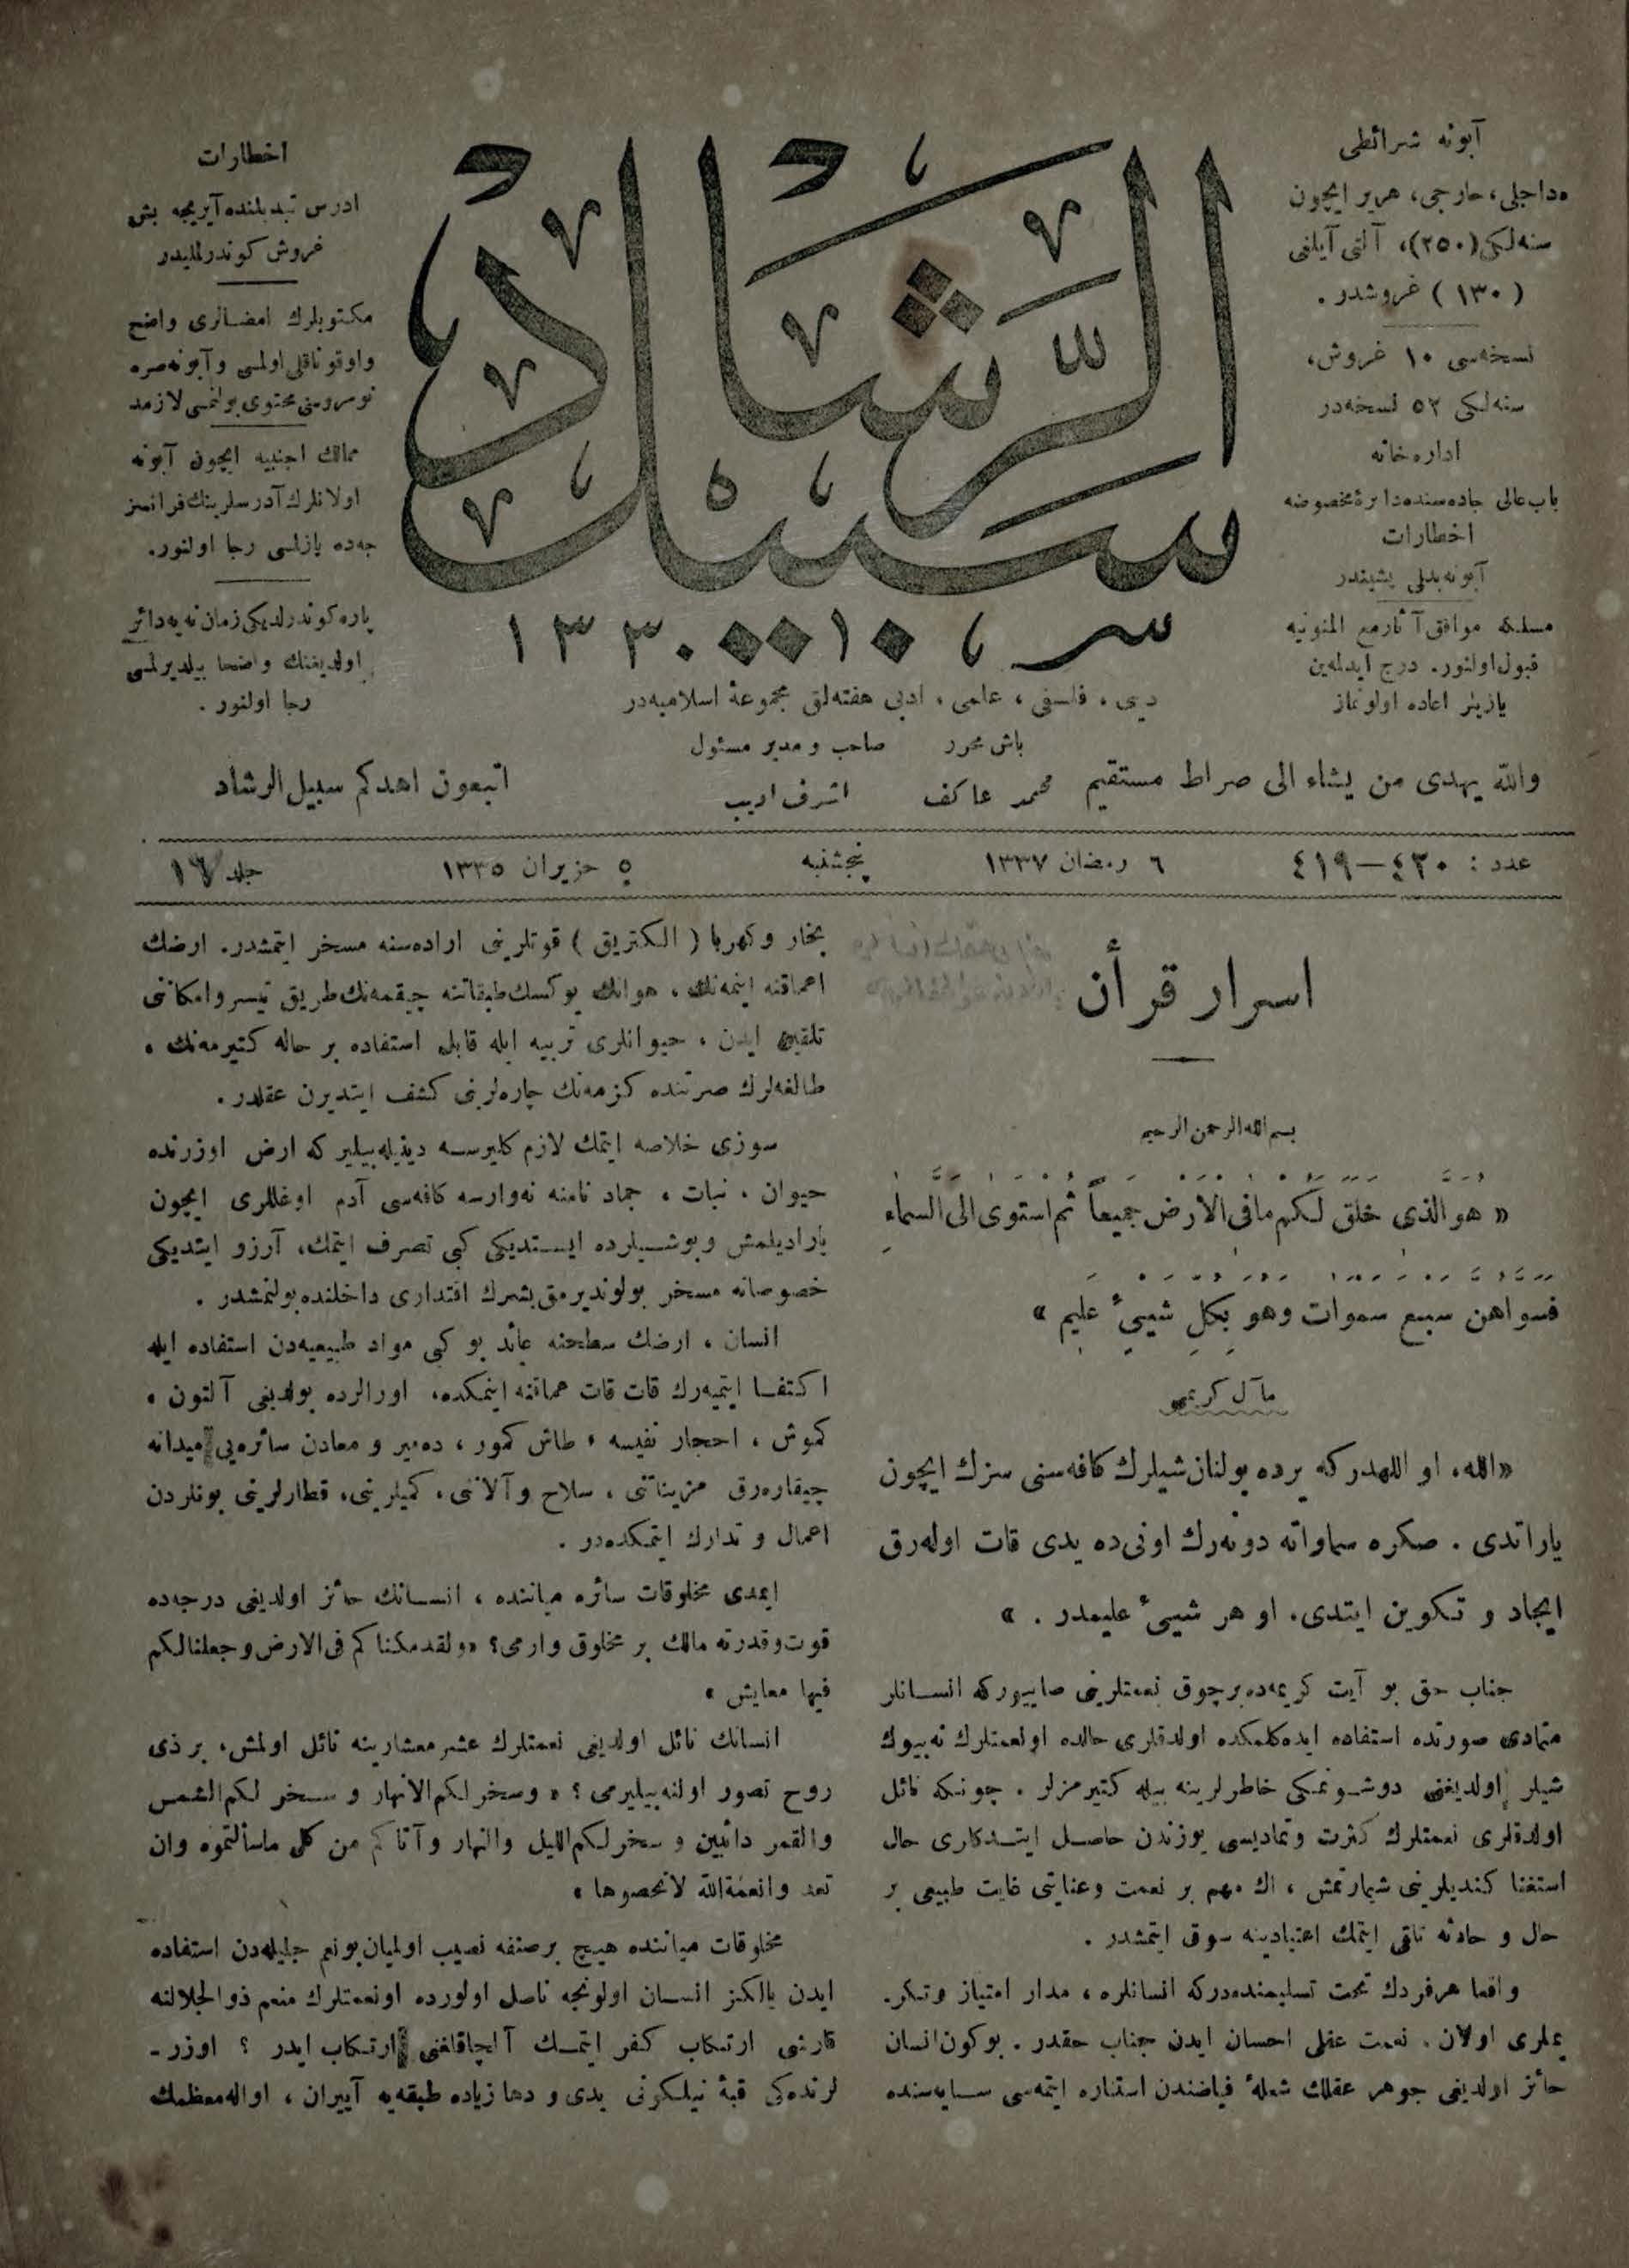 آبونه شرائطی
داخلی، خارجی، هریر ایچون
سنه‌لکی (۲۵۰)، آلتی آیلغی
(۱۳۰) غروشدر.
نسخه‌سی ۱۰ غروش،
سنه‌لکی ۵۲ نسخه‌در
اداره‌خانه
باب عالی جاده‌سنده دائرهٔ مخصوصه
اخطارات
آبونه بدلی پشیندر
مسلکه موافق آثار مع الممنونیه
قبول اولنور. درج ایدلمه‌ین
یازیلر اعاده اولونماز
سبیل الرشاد
۱۳۳۰
دینی، فلسفی، علمی، ادبی هفته‌لق مجموعهٔ اسلامیه‌در
باش محرر
محمد عاکف
صاحب و مدیر مسئول
اشرف ادیب
اخطارات
ادرس تبدیلنده آیریجه بش
غروش کوندرلملیدر
مکتوبلرك امضالری واضح
واوقوناقلی اولمسی و آبونه صره
نومروسنی محتوی بولنمسی لازمدر
ممالك اجنبیه ایچون آبونه
اولانلرك آدرسلرینك فرانسز
جه‌ده یازلمسی رجا اولنور.
پاره کوندرلدیکی زمان نه‌یه دائر
اولدیغنك واضحا بیلدیرلمسی
رجا اولنور.
والله یهدی من یشاء الی صراط مستقیم
اتبعون اهدکم سبیل الرشاد
عدد : ٤٢٠—٤١٩
٦ رمضان ١٣٣٧
پنجشنبه
٥ حزیران ١٣٣٥
جلد ١٧
اسرار قرأن
بسم الله الرحمن الرحیم
« هو الذی خلق لکم ما فی الارض جمیعاً ثم استوی الی السماء
فسواهن سبع سموات وهو بکل شییء علیم »
مآل کریمی
«الله، او اللهدر که یرده بولنان شیلرك کافه‌سنی سزك ایچون
یاراتدی. صکره سماواته دونه‌رك اونی‌ده یدی قات اوله‌رق
ایجاد و تکوین ایتدی. او هر شییء علیمدر. »
جناب حق بو آیت کریمه‌ده برچوق نعمتلرینی صاییور که انسانلر
متمادی صورتده استفاده ایده‌کلمکده اولدقلری حالده او نعمتلرك نه بیوك
شیلر اولدیغنی دوشونمکی خاطرلرینه بیله کتیرمزلر. چونکه نائل
اولدقلری نعمتلرك کثرت وتمادیسی یوزندن حاصل ایتدکاری حال
استغنا کندیلرینی شیمارتمش، اك مهم بر نعمت وعنایتی غایت طبیعی بر
حال و حادثه تلقی ایتمك اعتیادینه سوق ایتمشدر.
واقعا هرفردك تحت تسلیمنده‌در که انسانلره، مدار امتیاز وتکر.
یملری اولان نعمت عقلی احسان ایدن جناب حقدر. بوکون انسان
حائز اولدیغی جوهر عقلك شعلهٔ فیاضندن استناره ایتمه‌سی سایه‌سنده
بخار وکهربا (الکتریق) قوتلرینی اراده‌سنه مسخر ایتمشدر. ارضك
اعماقنه اینمه‌نك، هوانك یوکسك طبقاتنه چیقمه‌نك طریق تیسر وامکانی
تلقین ایدن، حیوانلری تربیه ایله قابل استفاده بر حاله کتیرمه‌نك،
طالغه‌لرك صرتنده کزمه‌نك چاره‌لرینی کشف ایتدیرن عقلدر.
سوزی خلاصه ایتمك لازم کلیرسه دینیله‌بیلیر که ارض اوزرنده
حیوان، نبات، جماد نامنه نه‌وارسه کافه‌سی آدم اوغللری ایچون
یارادیلمش وبوشیلرده ایستدیکی کبی تصرف ایتمك، آرزو ایتدیکی
خصوصاته مسخر بولوندیرمق بشرك اقتداری داخلنده بولنمشدر.
انسان، ارضك سطحنه عائد بو کبی مواد طبیعیه‌دن استفاده ایله
اکتفا ایتمیه‌رك قات قات اعماقنه اینمکده، اورالرده بولدیغی آلتون،
کموش، احجار نفیسه، طاش کمور، ده‌میر و معادن سائره‌یی میدانه
چیقاره‌رق مزیناتنی، سلاح وآلاتنی، کمیلرینی، قطارلرینی بونلردن
اعمال و تدارك ایتمکده‌در.
ایمدی مخلوقات سائره میاننده، انسانك حائز اولدیغی درجه‌ده
قوت‌وقدرته مالك بر مخلوق وارمی؟ «ولقد مکناکم فی الارض وجعلنا لکم
فیها معایش»
انسانك نائل اولدیغی نعمتلرك عشر معشارینه نائل اولمش، بر ذی
روح تصور اولنه‌بیلیرمی؟ «وسخر لکم الانهار و سخر لکم الشمس
والقمر دائبین وسخر لکم اللیل والنهار وآتاکم من کل ماسألتموه وان
تعدوا نعمة‌الله لاتحصوها»
مخلوقات میاننده هیچ بر صنفه نصیب اولمیان بونعم جلیله‌دن استفاده
ایدن یالکز انسان اولونجه ناصل اولورده اونعمتلرك منعم ذوالجلالنه
قارشی ارتکاب کفر ایتمك آلچاقلغنی ارتکاب ایدر؟ اوزر-
لرنده‌کی قبهٔ نیلکونی یدی و دها زیاده طبقه‌یه آییران، اواله معظمك